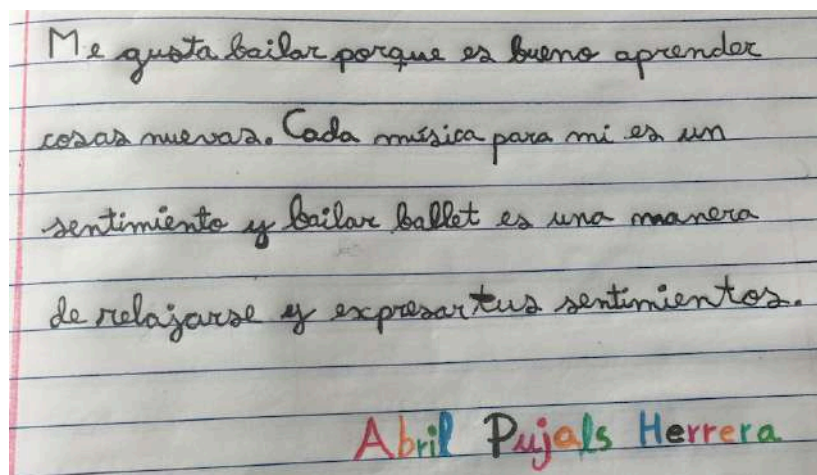 Me gusta bailar porque es bueno aprender
cosas nuevas. Cada música para mi es un
sentimiento y bailar ballet es una manera
de relajarse y expresar tus sentimientos.
Abril Pujals Herrera